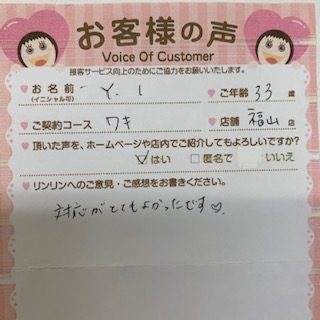 お客様の声
Voice Of Customer
接客サービス向上のためにご協力をお願いいたします。
お名前 Y.I ご年齢 33 歳
(イニシャル可)
ご契約コース ワキ 店舗 福山 店
頂いた声を、ホームページや店内でご紹介してもよろしいですか?
はい 匿名で いいえ
リンリンへのご意見・ご感想をお書きください。
対応がとてもよかったです♡